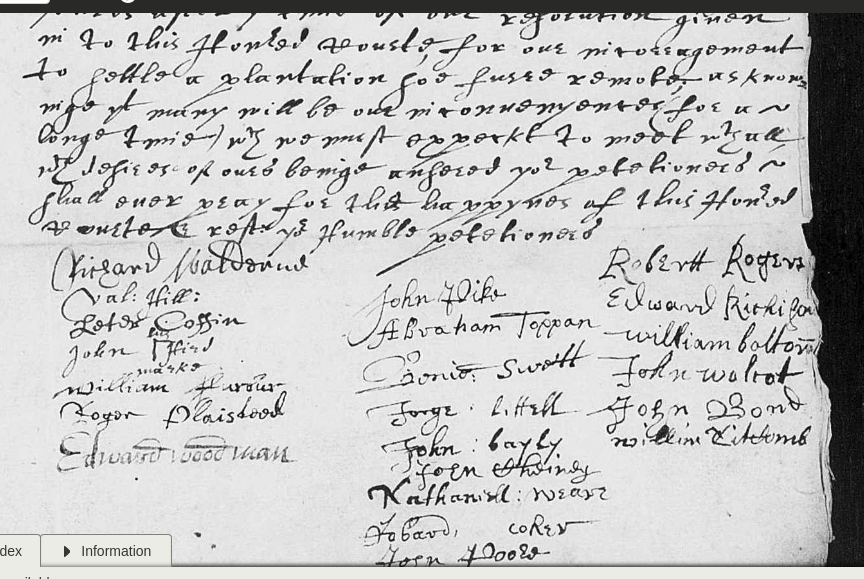 resolution given
in to this Honred Courte, for our incorragement
to settle a plantation soe furre remote, as know
inge yt many will be our inconvenyences for a
longe time, wch we must expeckt to meet wth all
wch desires of ours beinge ansered yor petetioners
shall ever pray for the happynes of this Honred
Courte & rest yor Humble petetioners
Richard Walderne
Val: Hill:
Peter Coffin
John Hird
marke
William
Roger Plaisteed
Edward woodman
John Pike
Abraham Toppan
Benie: Swett
Jorge: littell
John: bayly
John Cheiney
Nathaniell: weare
Robard, coker
John Poore
Robertt Rogers
Edward Richison
william bolton
John wolcot
John Bond
willim Titcomb
dex
Information